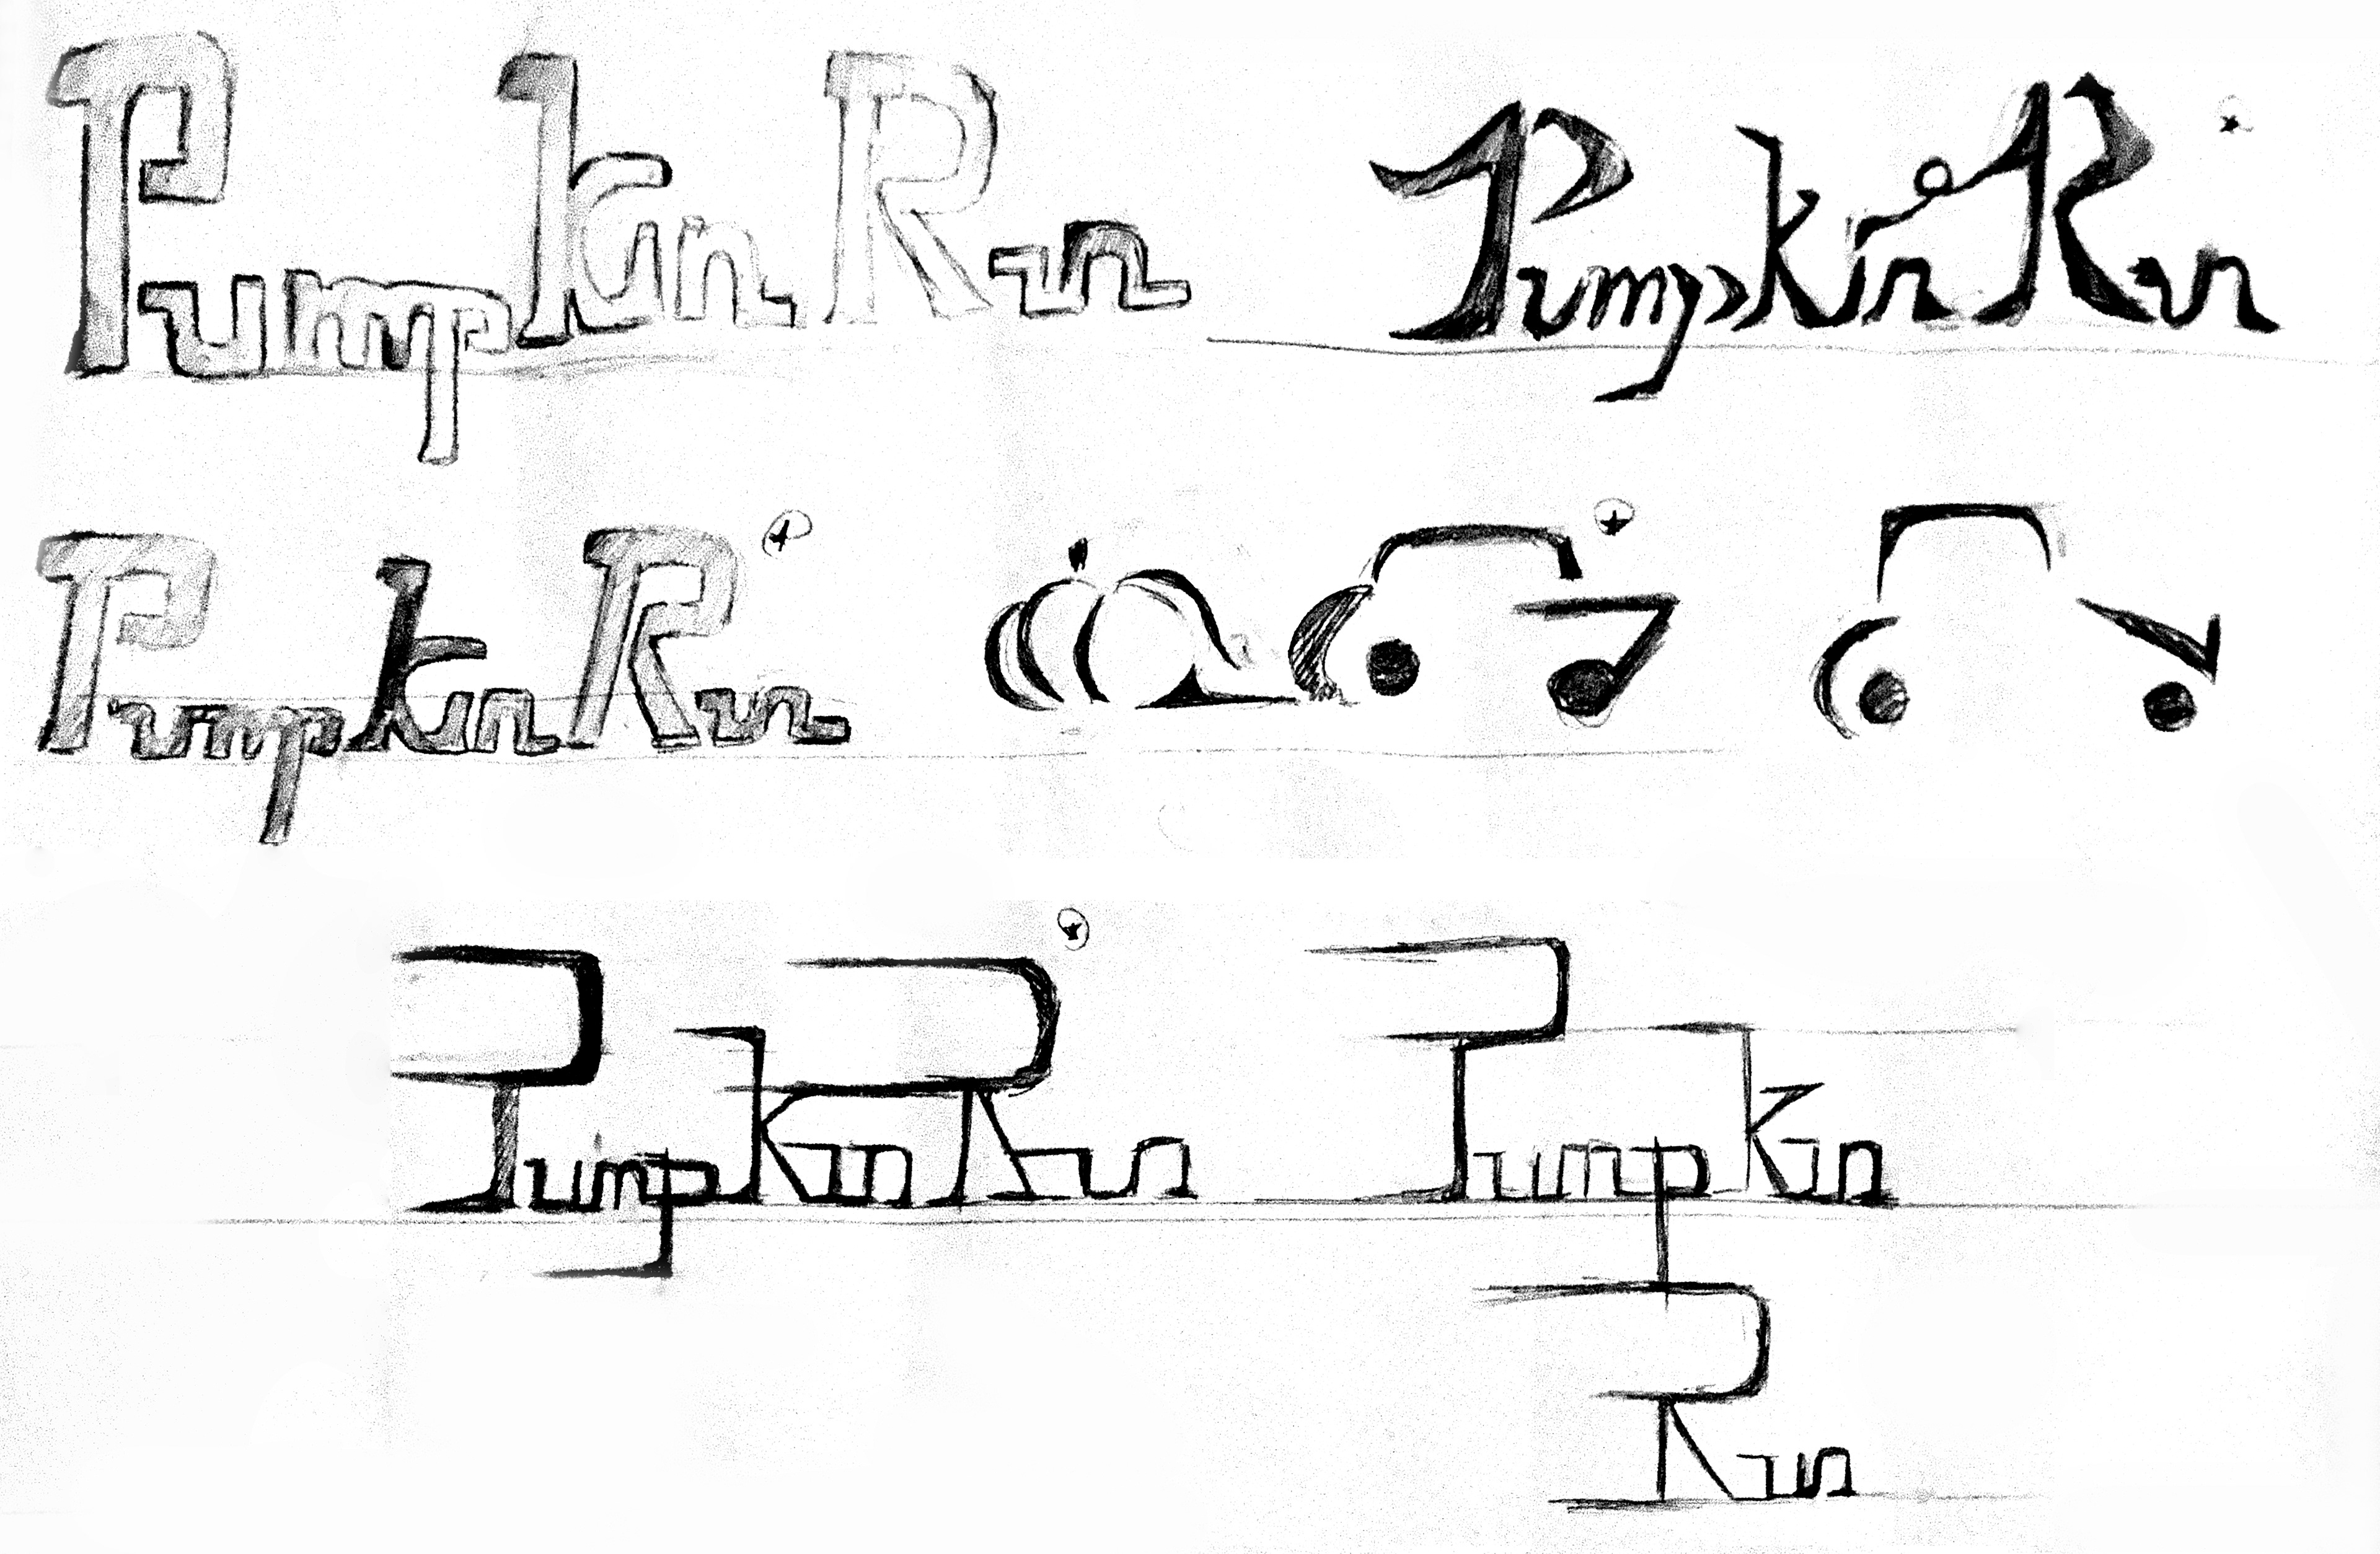 Pumpkin Run
Pumpkin Run
Pumpkin Run
Pumpkin Run
Pumpkin
Run